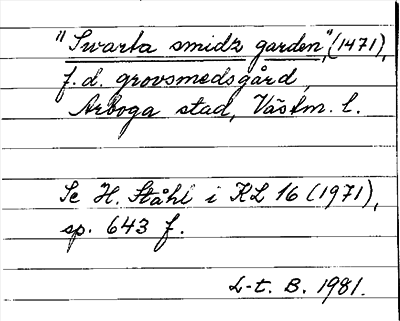 "Swarta smidz garden", (1471),
f.d. grovsmedsgård,
Arboga stad, Västm. l.
Se H. Ståhl i KL 16 (1971),
sp. 643 f.
L-t. B. 1981.